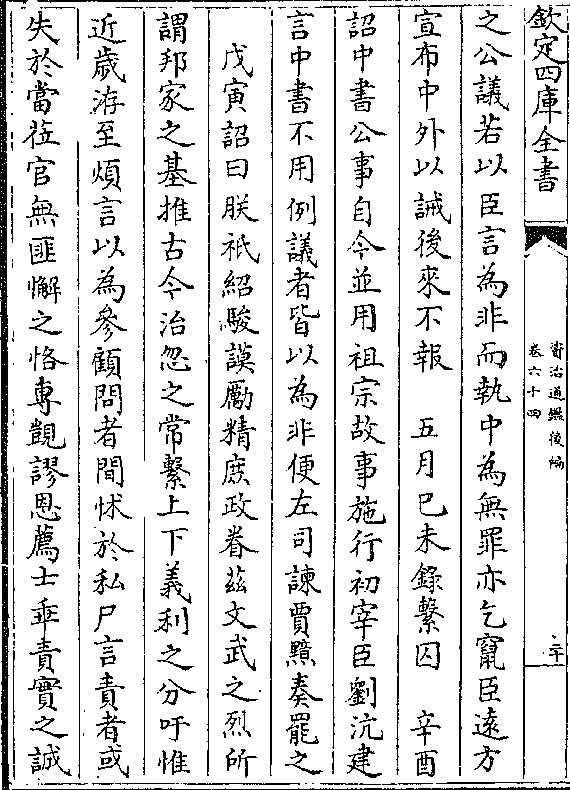 欽定四庫全書
資治通鑑後編
卷六十四
二十
之公議若以臣言為非而執中為無罪亦乞竄臣遠方
宣布中外以誡後來不報　五月己未錄繫囚　辛酉
詔中書公事自今並用祖宗故事施行初宰臣劉沆建
言中書不用例議者皆以為非便左司諫賈黯奏罷之
戊寅詔曰朕祇紹駿謨勵精庶政眷茲文武之烈所
謂邦家之基推古今治忽之常繫上下義利之分吁惟
近歲洊至煩言以為參顧問者間怵於私尸言責者或
失於當蒞官無匪懈之恪專覬謬恩薦士乖責實之誠